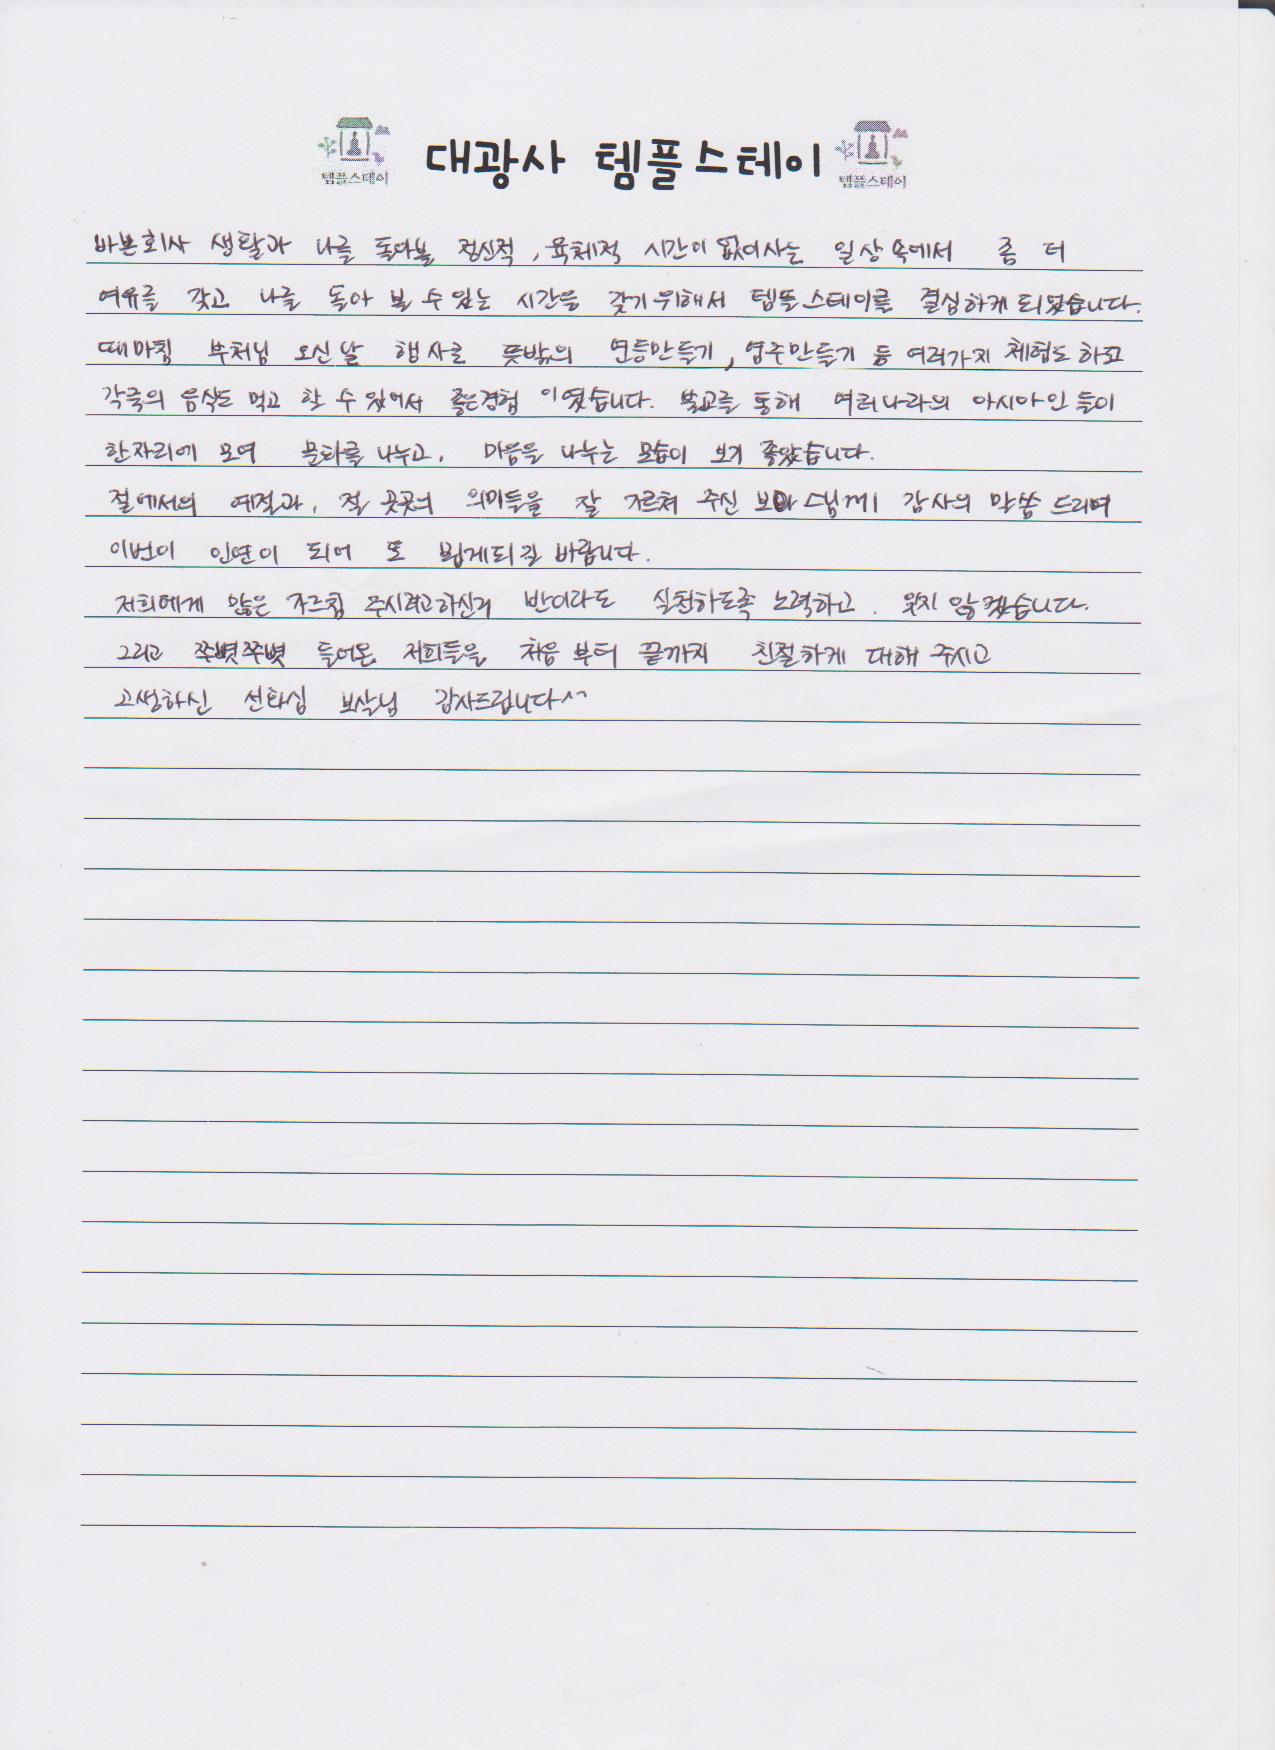 템플스테이 대광사 템플스테이 템플스테이
바쁜회사 생활과 나를 돌아볼 정신적, 육체적 시간이 없이사는 일상 속에서 좀 더
여유를 갖고 나를 돌아 볼 수 있는 시간을 갖기위해서 템플스테이를 결심하게 되었습니다.
때마침 부처님 오신날 행사로 뜻밖의 연등만들기, 염주만들기 등 여러가지 체험도 하고
각국의 음식도 먹고 할 수 있어서 좋은경험 이였습니다. 불교를 통해 여러나라의 아시아인들이
한자리에 모여 문화를 나누고, 마음을 나누는 모습이 보기 좋았습니다.
절에서의 예절과, 절 곳곳의 의미들을 잘 가르쳐 주신 스님께 감사의 말씀 드리며
이번이 인연이 되어 또 뵙게되길 바랍니다.
저희에게 많은 가르침 주시려고하신거 반이라도 실천하도록 노력하고. 잊지 않겠습니다.
그리고 쭈볏쭈볏 들어온 저희들을 처음 부터 끝까지 친절하게 대해 주시고
고생하신 선화심 보살님 감사드립니다^^